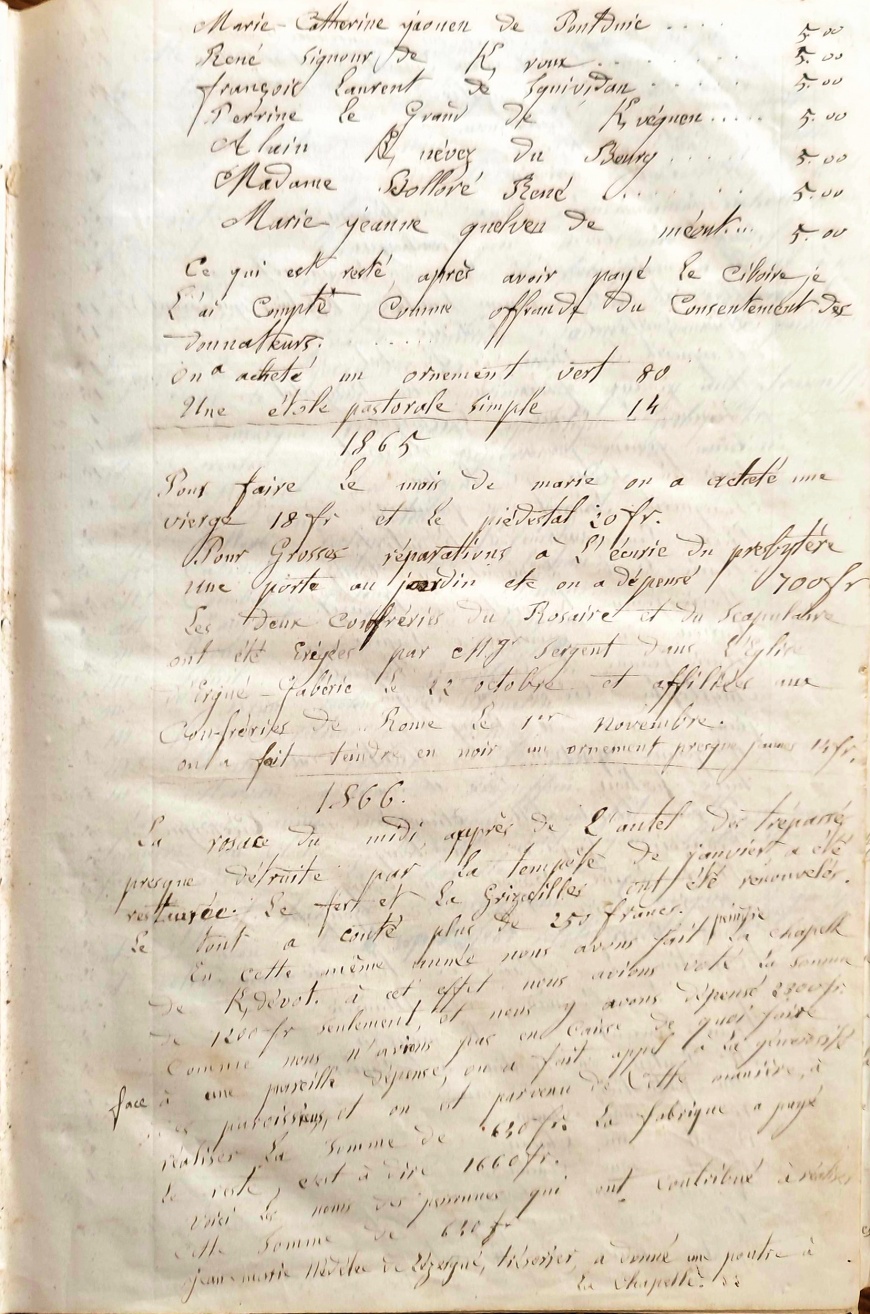 Marie-Catherine jaouen de Pontduic .... 5.00
René Signour de K, voux ........ 5.00
françois Laurent de Squividan ...... 5.00
Perrine Le Grand de K, végnen ..... 5.00
Alain K, nével du Bourg ..... 5.00
Madame Bolloré René ...... 5.00
Marie jeanne quelven de méout... 5.00
Ce qui est resté, après avoir payé Le Ciboire, je
L'ai Compté Comme offrande du Consentement des
donnateurs. .....
On a acheté un ornement vert 80
Une étole pastorale simple 14
1865
Pour faire Le mois de marie on a acheté une
vierge 18 fr et Le piédestal 20 fr.
Pour Grosses réparations à L'écurie du presbytère
une porte au jardin etc on a dépensé 700 fr
Les deux Confréries du Rosaire et du Scapulaire
ont été Erigées par Mgr Sergent dans L'Eglise
d'Ergué-Gabéric Le 22 octobre et affiliées aux
Confréries de Rome Le 1er novembre.
on a fait teindre en noir un ornement presque jaune 14 fr.
1866.
La rosace du midi, apprès de L'autel des trépassés
presque détruite par La tempête de janvier a été
restaurée. Le fer et La Grizailles ont été renouvelés.
Le tout a couté plus de 250 francs.
En cette même année nous avons fait peindre La Chapelle
de K, dévot. à cet effet nous avions voté La Somme
de 1200 fr seulement, et nous y avons dépensé 2300 fr.
Comme nous n'avions pas en Caisse de quoi faire
face à une pareille dépense, on a fait appel à La générosité
des paroissiens, et on est parvenu de Cette manière, à
réaliser La Somme de 640 fr. La fabrique a payé
Le reste, c'est à dire 1660 fr.
Voici Les noms des personnes qui ont Contribué à réaliser
Cette Somme de 640 fr
jean-marie Nédélec de Lézergué, trésorier, a donné une poutre à
La Chapelle.